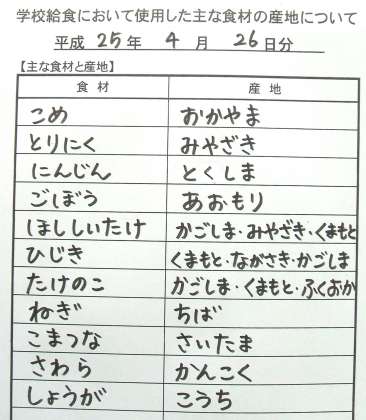 学校給食において使用した主な食材の産地について
平成 25 年 4 月 26 日分
【主な食材と産地】
食材 産地
こめ おかやま
とりにく みやざき
にんじん とくしま
ごぼう あおもり
ほししいたけ かごしま・みやざき・くまもと
ひじき くまもと・ながさき・かごしま
たけのこ かごしま・くまもと・ふくおか
ねぎ ちば
こまつな さいたま
さわら かんこく
しょうが こうち